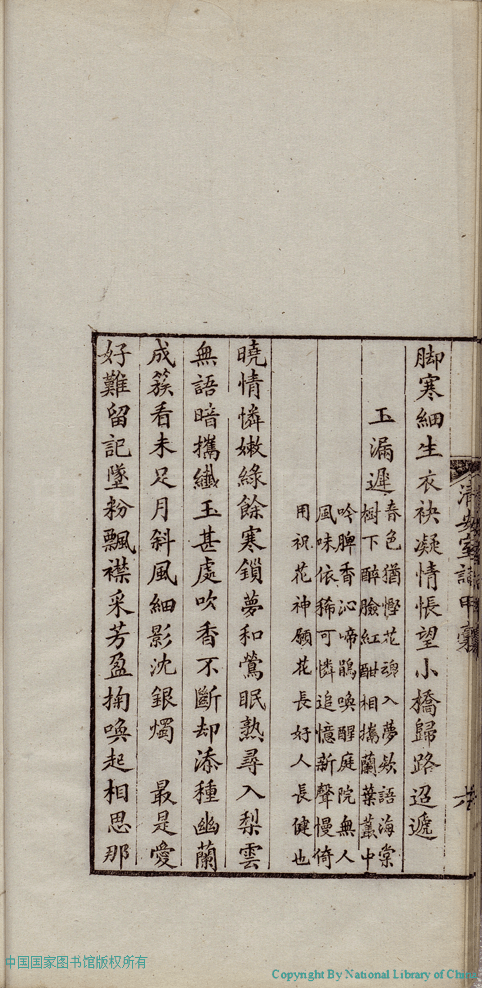 脚寒細生衣袂凝情悵望小橋歸路迢遞
玉漏遲
春色猶慳花魂入夢欸語海棠
樹下醉臉紅酣相攜蘭葉叢中
吟脾香沁啼鵑喚醒庭院無人
風味依稀可憐追憶新聲慢倚
用祝花神願花長好人長健也
曉情憐嫩綠餘寒鎖夢和鶯眠熟尋入梨雲
無語暗攜纖玉甚處吹香不斷却添種幽蘭
成簇看未足月斜風細影沈銀燭　最是愛
好難留記墜粉飄襟采芳盈掬喚起相思那
中国国家图书馆版权所有
Copyright By National Library of